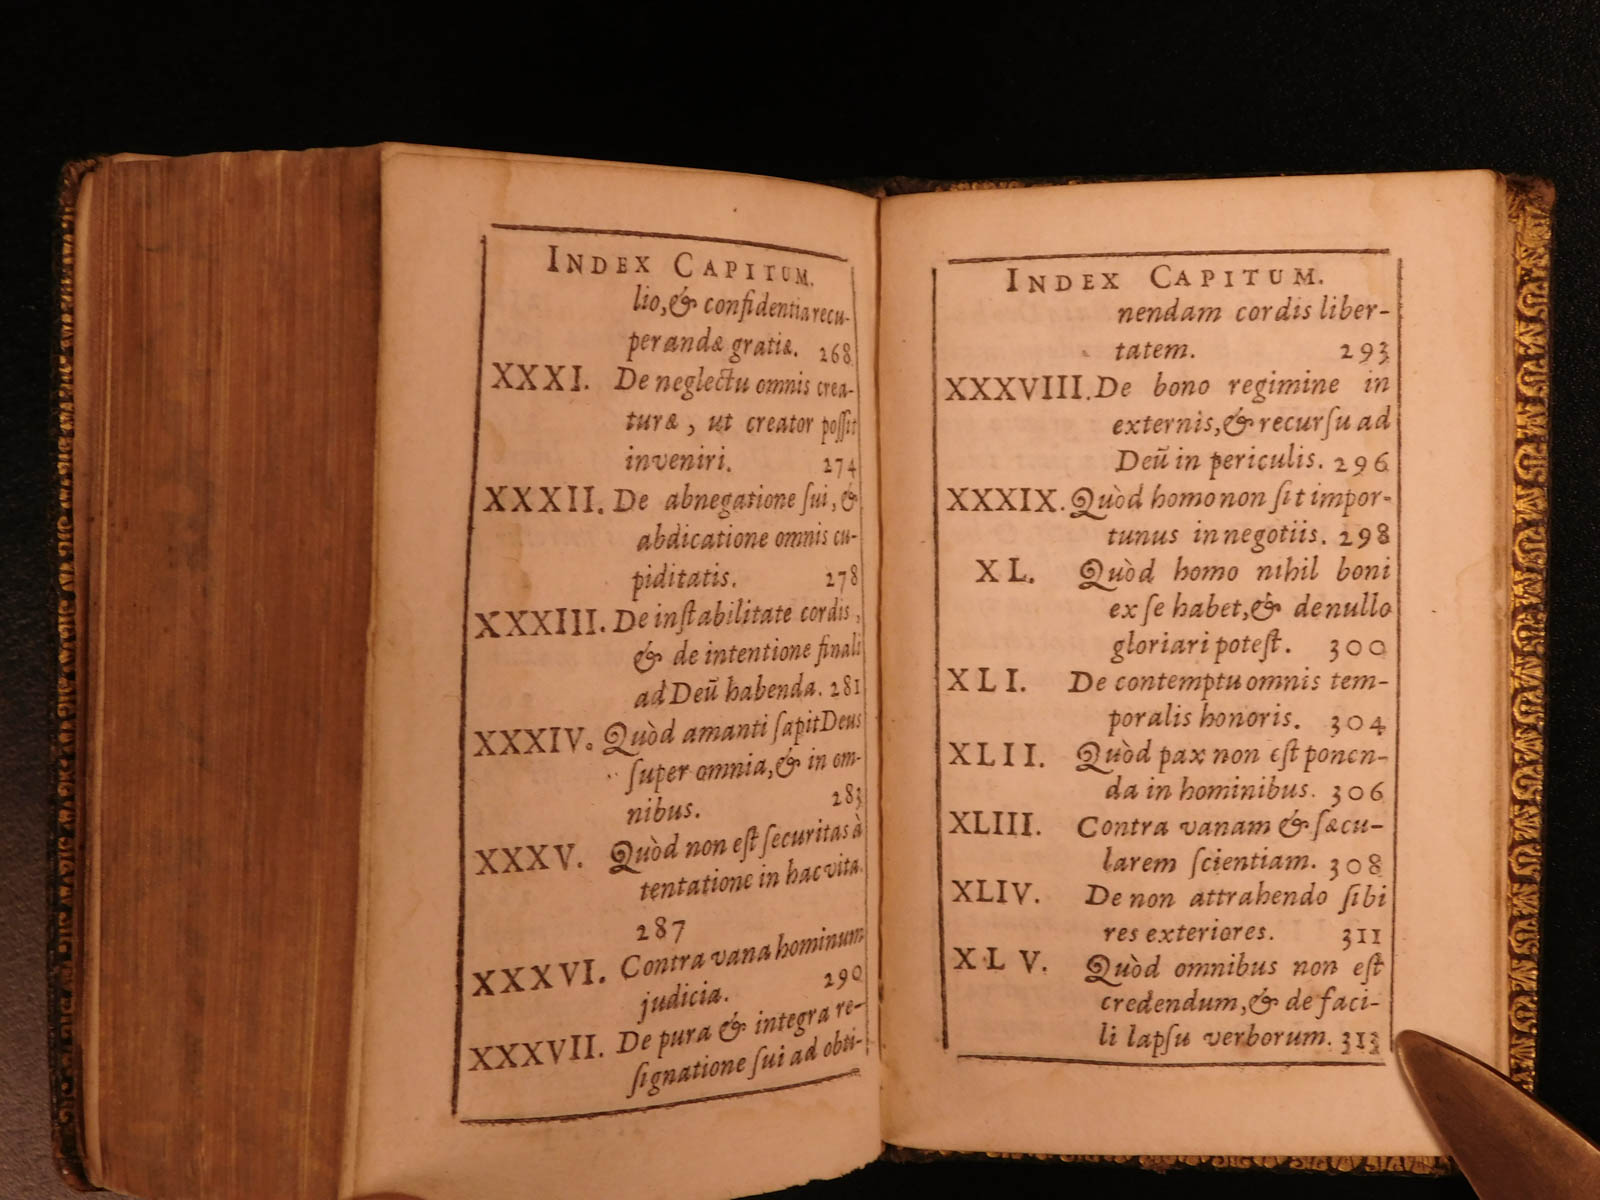 INDEX CAPITUM.
lio, & confidentia recu-
perandæ gratiæ. 268
XXXI. De neglectu omnis crea-
turæ, ut creator poſſit
inveniri. 274
XXXII. De abnegatione ſui, &
abdicatione omnis cu-
piditatis. 278
XXXIII. De inſtabilitate cordis,
& de intentione finali
ad Deū habenda. 281
XXXIV. Quòd amanti ſapit Deus
ſuper omnia, & in om-
nibus. 283
XXXV. Quòd non eſt ſecuritas à
tentatione in hac vita.
287
XXXVI. Contra vana hominum
judicia. 290
XXXVII. De pura & integra re-
ſignatione ſui ad obti-
INDEX CAPITUM.
nendam cordis liber-
tatem. 293
XXXVIII. De bono regimine in
externis, & recurſu ad
Deū in periculis. 296
XXXIX. Quòd homo non ſit impor-
tunus in negotiis. 298
XL. Quòd homo nihil boni
ex ſe habet, & de nullo
gloriari poteſt. 300
XLI. De contemptu omnis tem-
poralis honoris. 304
XLII. Quòd pax non eſt ponen-
da in hominibus. 306
XLIII. Contra vanam & ſæcu-
larem ſcientiam. 308
XLIV. De non attrahendo ſibi
res exteriores. 311
XLV. Quòd omnibus non eſt
credendum, & de faci-
li lapſu verborum. 313